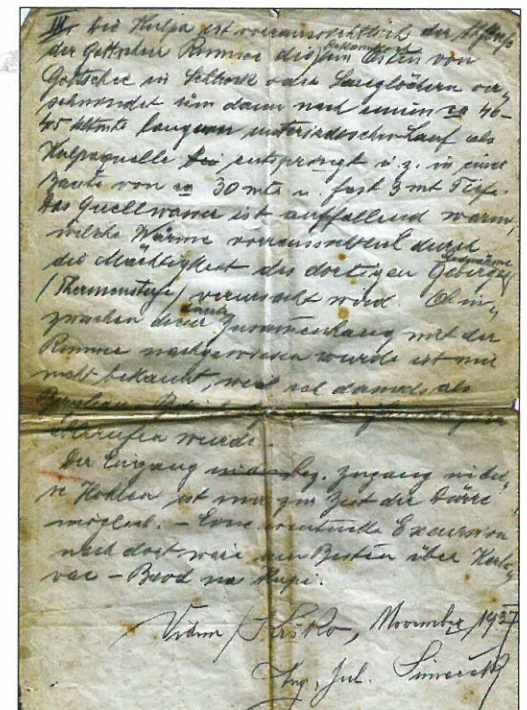 III. Die Kulpa ist voraussichtlich der Abfluss
der Gottscheer Rinnsee die im Osten von
Gottschee in Schlock oder Sauglöchern ver-
schwindet um dann nach einem ca 40-
45 klmts langen unterirdischen Lauf als
Kulpaquelle entspringt u. z. in einer
Breite von ca 30 mts u. fast 3 mt Tiefe.
Das Quellwasser ist auffallend warm,
welche Wärme voraussichtlich durch
die Mächtigkeit des dortigen Gebirges
/Thermenstufe/ verursacht wird. Ob in-
zwischen dieser Zusammenhang mit der
Rinnsee nachgewiesen wurde ist mir
nicht bekannt, weil ich damals als
wurde.
Der Eingang bez. Zugang in die-
se Höhlen ist nur zur Zeit der Dürre
möglich. – Eine eventuelle Excursion
nach dort wäre am Besten über Karlo-
vac – Brod na Kupi.
Videm / Krško, November 1937
Ing. Jul.